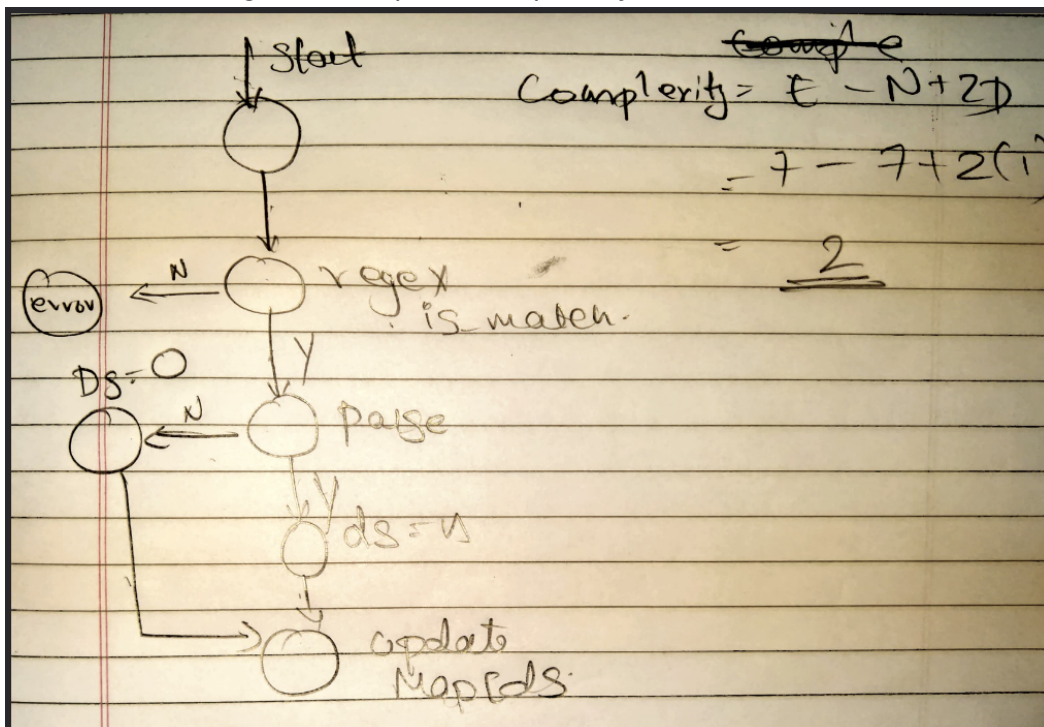 Start
Comple
Complexity = E - N + 2P
= 7 - 7 + 2(1)
= 2
N
regex
is_match.
error
Y
Ds=0
N
parse
Y
ds=n
update
Map[ds